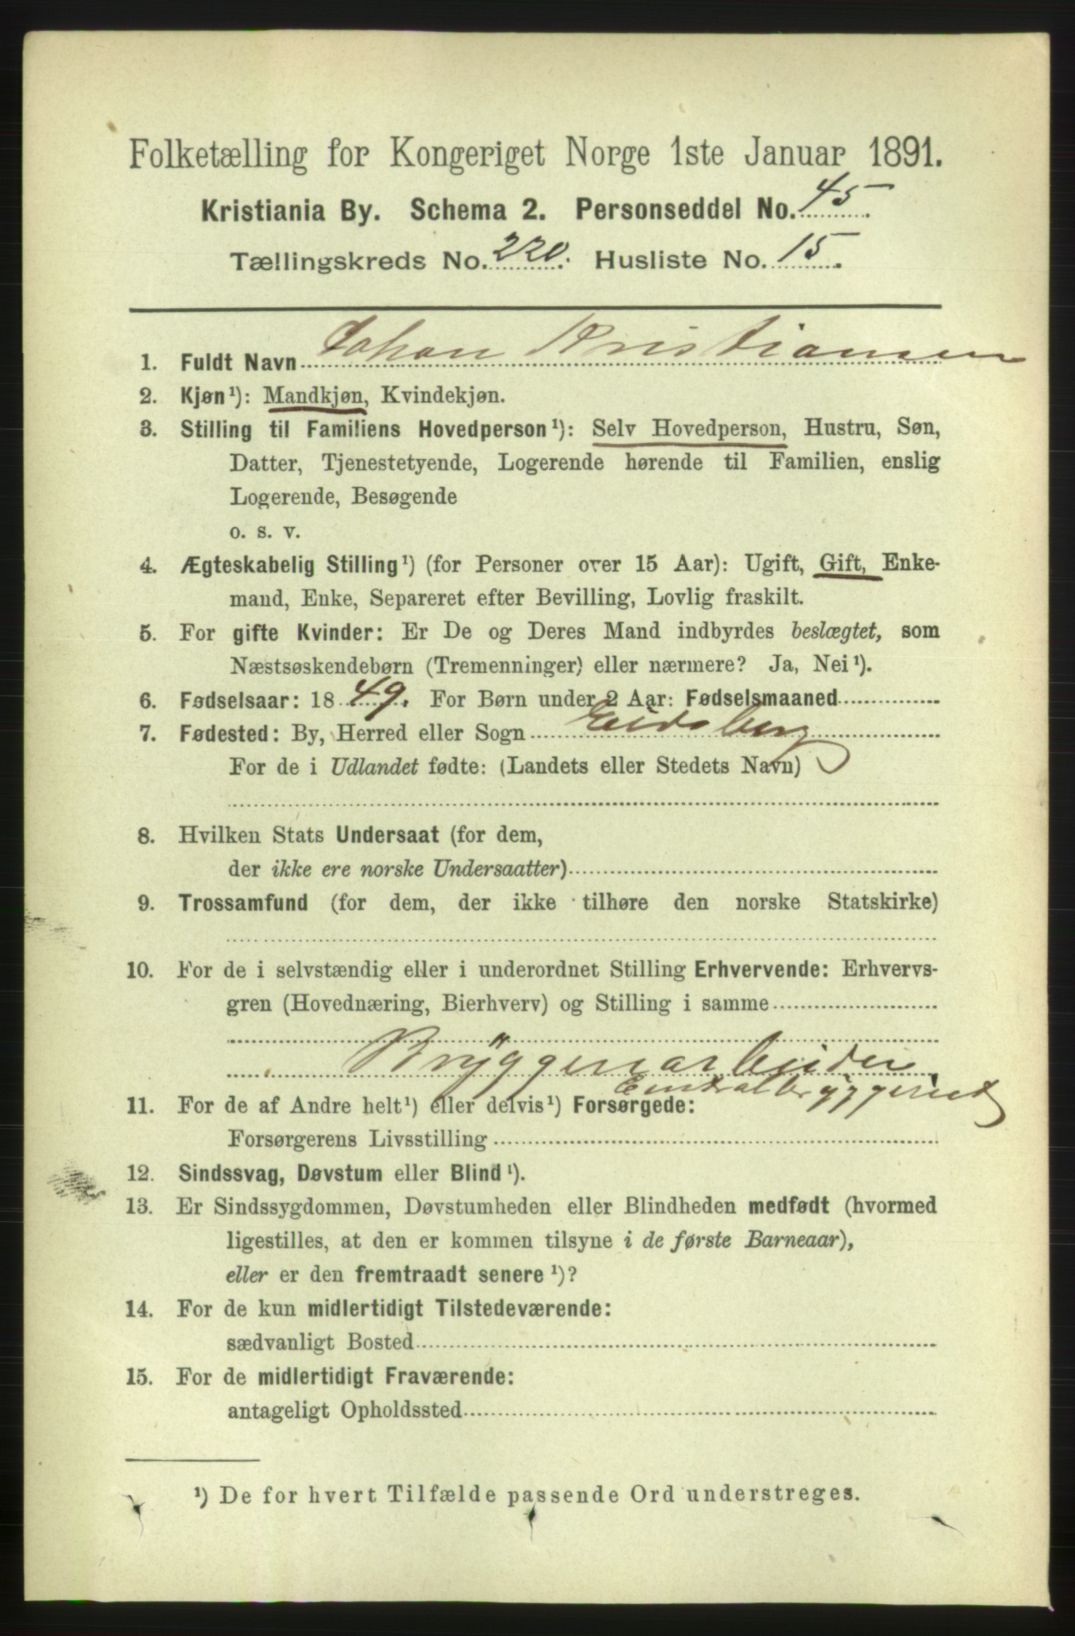 Folketælling for Kongeriget Norge 1ste Januar 1891.
Kristiania By. Schema 2. Personseddel No. 45
Tællingskreds No. 220. Husliste No. 15.
1. Fuldt Navn Johan Kristiansen
2. Kjøn¹): Mandkjøn, Kvindekjøn.
3. Stilling til Familiens Hovedperson¹): Selv Hovedperson, Hustru, Søn,
Datter, Tjenestetyende, Logerende hørende til Familien, enslig
Logerende, Besøgende
o. s. v.
4. Ægteskabelig Stilling¹) (for Personer over 15 Aar): Ugift, Gift, Enke-
mand, Enke, Separeret efter Bevilling, Lovlig fraskilt.
5. For gifte Kvinder: Er De og Deres Mand indbyrdes beslægtet, som
Næstsøskendebørn (Tremenninger) eller nærmere? Ja, Nei¹).
6. Fødselsaar: 1849. For Børn under 2 Aar: Fødselsmaaned
7. Fødested: By, Herred eller Sogn Eidsberg
For de i Udlandet fødte: (Landets eller Stedets Navn)
8. Hvilken Stats Undersaat (for dem,
der ikke ere norske Undersaatter)
9. Trossamfund (for dem, der ikke tilhøre den norske Statskirke)
10. For de i selvstændig eller i underordnet Stilling Erhvervende: Erhvervs-
gren (Hovednæring, Bierhverv) og Stilling i samme
Bryggeriarbeider,
Centralbryggeriet
11. For de af Andre helt¹) eller delvis¹) Forsørgede:
Forsørgerens Livsstilling
12. Sindssvag, Døvstum eller Blind¹).
13. Er Sindssygdommen, Døvstumheden eller Blindheden medfødt (hvormed
ligestilles, at den er kommen tilsyne i de første Barneaar),
eller er den fremtraadt senere¹)?
14. For de kun midlertidigt Tilstedeværende:
sædvanligt Bosted
15. For de midlertidigt Fraværende:
antageligt Opholdssted
¹) De for hvert Tilfælde passende Ord understreges.